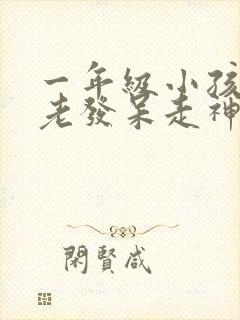 一年級小孩
老發呆走神
閑賢咸